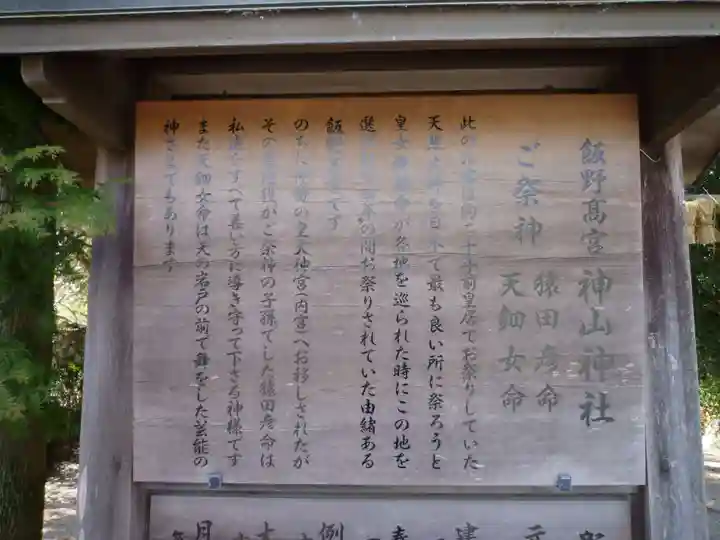 飯野高宮 神山神社
ご祭神 猿田彦命
天鈿女命
此の 二千年前皇居でお祭りしていた
天照大神を日本で最も良い所に祭ろうと
皇女倭姫命が各地を巡られた時にこの地を
選 の間お祭りされていた由緒ある
飯 です
のちに 皇大神宮(内宮)へお移しされたが
その ご祭神の子孫でした猿田彦命は
私達をすべて善い方に導き守って下さる神様です
また天鈿女命は天の岩戸の前で舞をした芸能の
神さまでもあります
建
春
例
月